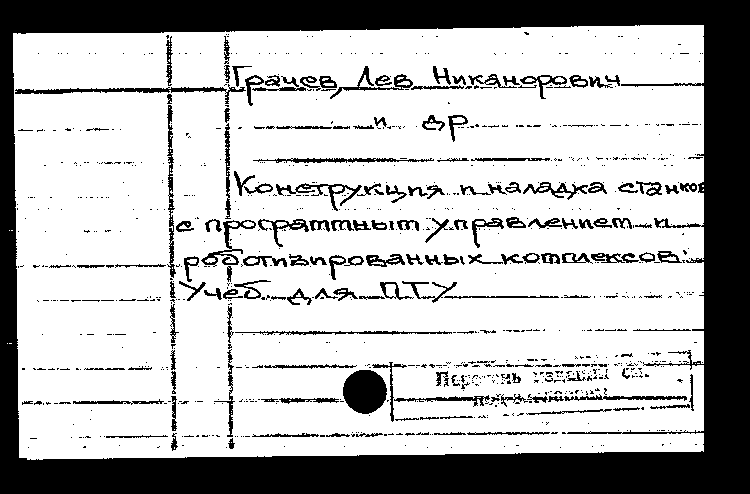 Грачев, Лев Никанорович
и др.
Конструкция и наладка станков
с программным управлением и
роботизированных комплексов:
Учеб. для ПТУ
Перечень изданий см.